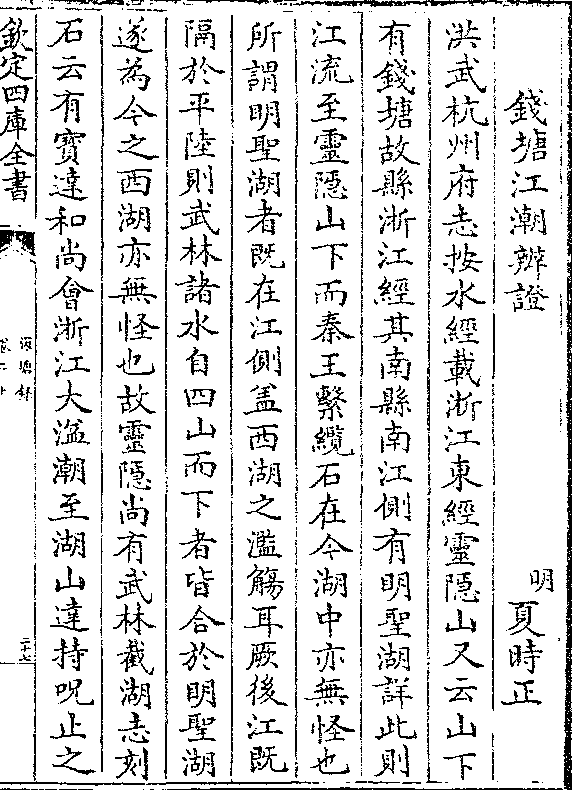 錢塘江潮辨證
明夏時正
洪武杭州府志按水經載浙江東經靈隱山又云山下
有錢塘故縣浙江經其南縣南江側有明聖湖詳此則
江流至靈隱山下而秦王繫纜石在今湖中亦無怪也
所謂明聖湖者既在江側盖西湖之濫觴耳厥後江既
隔於平陸則武林諸水自四山而下者皆合於明聖湖
遂為今之西湖亦無怪也故靈隱尚有武林截湖志刻
石云有寳達和尚會浙江大溢潮至湖山達持呪止之
欽定四庫全書
二十七